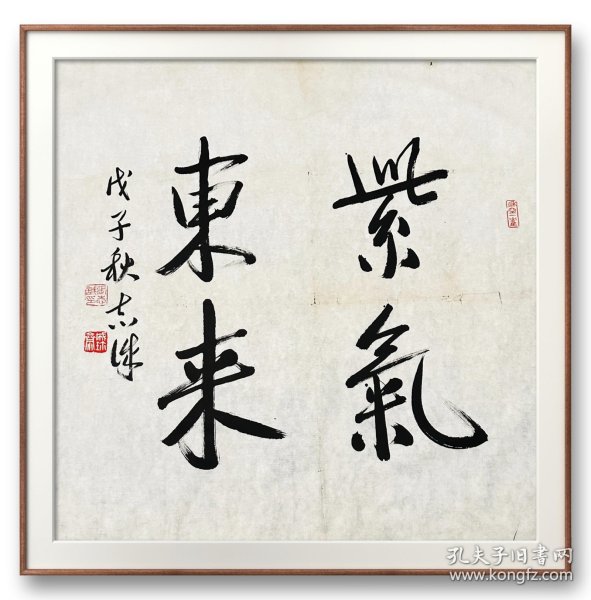 紫氣
東来
戊子秋志诚
孔夫子旧书网
www.kongfz.com